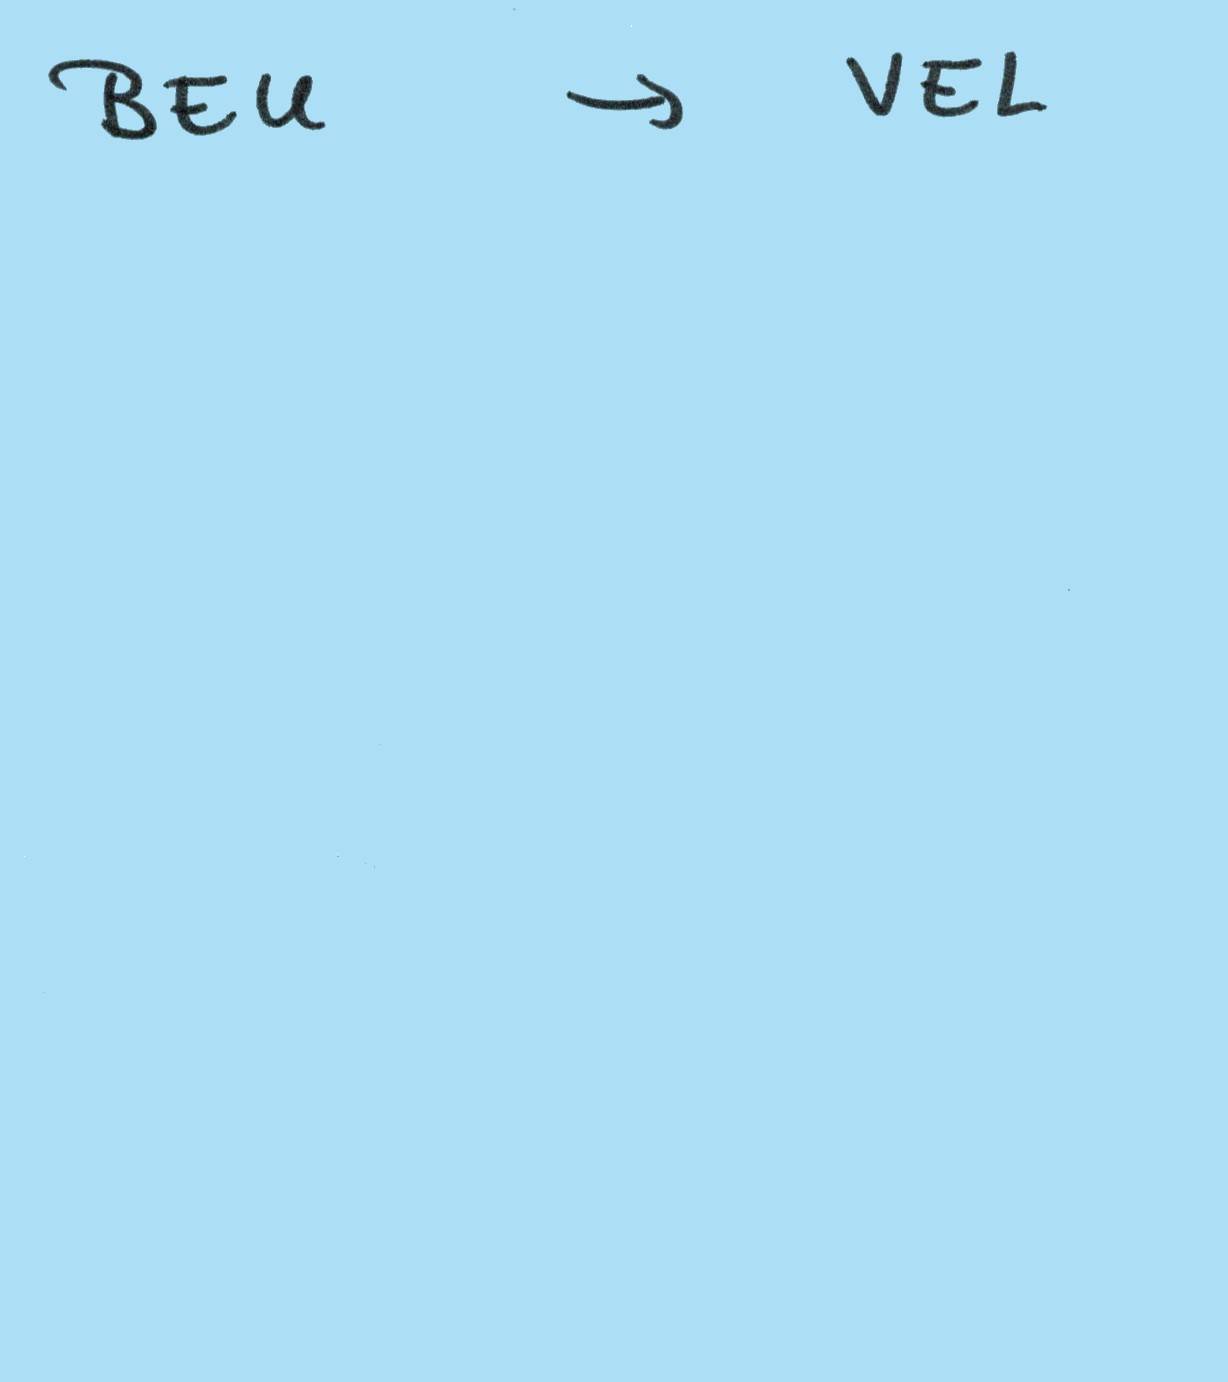 BEU → VEL